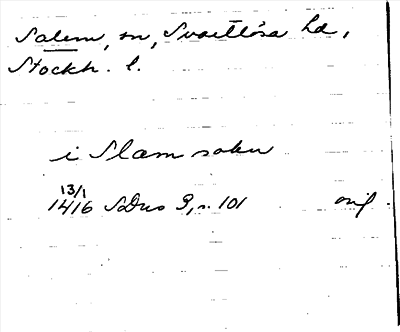 Salem, sn, Svartlösa hd,
Stockh. l.
i Slam sokn
13/1
1416 SDns 3, s. 101 orig.